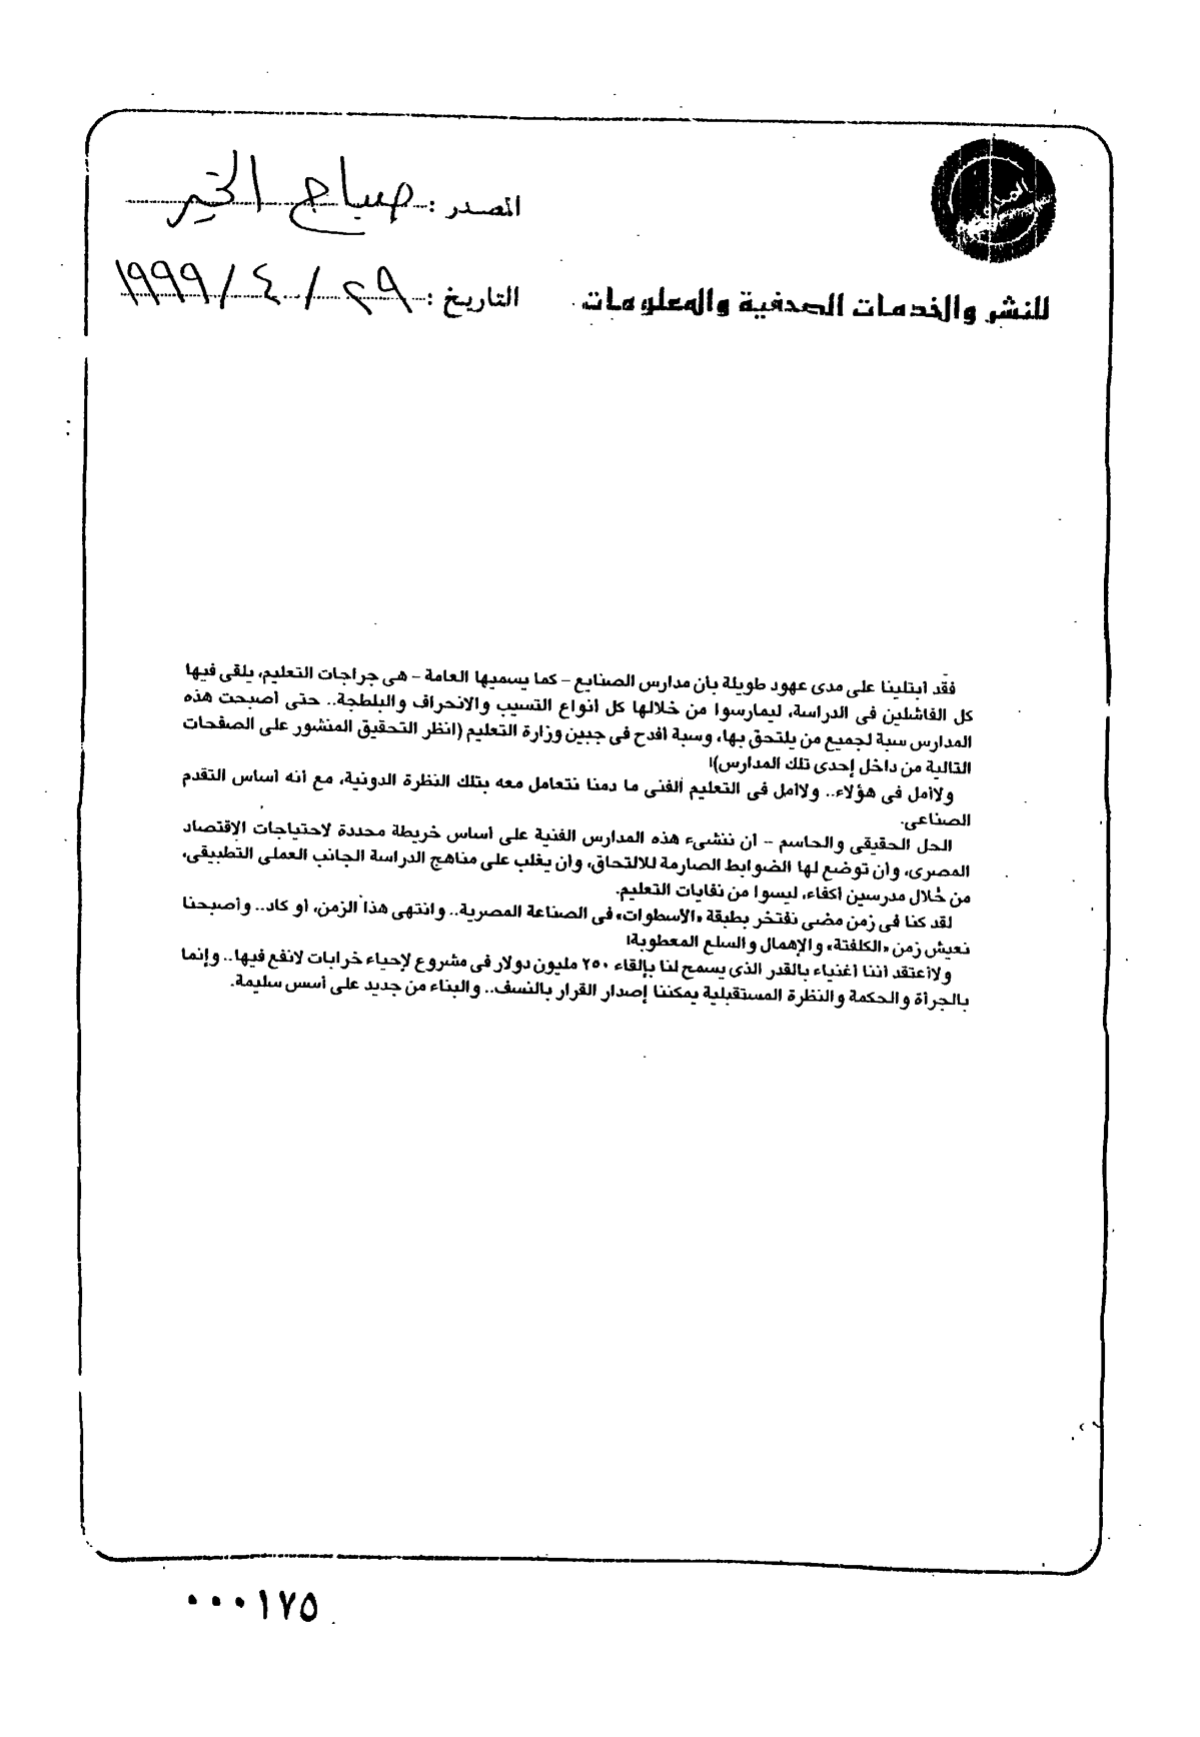 المصدر : صباح الخير
للنشر والخدمات الصحفية والمعلومات
التاريخ : ٢٩ / ٤ / ١٩٩٩
فقد ابتلينا على مدى عهود طويلة بأن مدارس الصنايع – كما يسميها العامة – هى جراجات التعليم، يلقى فيها
كل الفاشلين فى الدراسة، ليمارسوا من خلالها كل أنواع التسيب والانحراف والبلطجة.. حتى أصبحت هذه
المدارس سبة لجميع من يلتحق بها، وسبة أفدح فى جبين وزارة التعليم (انظر التحقيق المنشور على الصفحات
التالية من داخل إحدى تلك المدارس)!
ولاأمل فى هؤلاء.. ولاأمل فى التعليم الفنى ما دمنا نتعامل معه بتلك النظرة الدونية، مع أنه أساس التقدم
الصناعى.
الحل الحقيقى والحاسم – أن ننشىء هذه المدارس الفنية على أساس خريطة محددة لاحتياجات الاقتصاد
المصرى، وأن توضع لها الضوابط الصارمة للالتحاق، وأن يغلب على مناهج الدراسة الجانب العملى التطبيقى،
من خلال مدرسين أكفاء، ليسوا من نفايات التعليم.
لقد كنا فى زمن مضى نفتخر بطبقة «الأسطوات» فى الصناعة المصرية.. وانتهى هذا الزمن، أو كاد.. وأصبحنا
نعيش زمن «الكلفتة» والإهمال والسلع المعطوبة!
ولاأعتقد أننا أغنياء بالقدر الذى يسمح لنا بإلقاء ٢٥٠ مليون دولار فى مشروع لإحياء خرابات لانفع فيها.. وإنما
بالجرأة والحكمة والنظرة المستقبلية يمكننا إصدار القرار بالنسف.. والبناء من جديد على أسس سليمة.
٠٠٠١٧٥